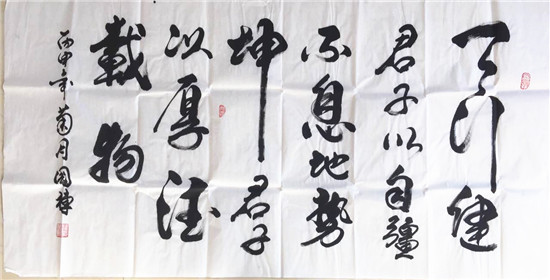 天行健
君子以自彊
不息地势
坤君子
以厚德
載物
丙申年菊月国樟